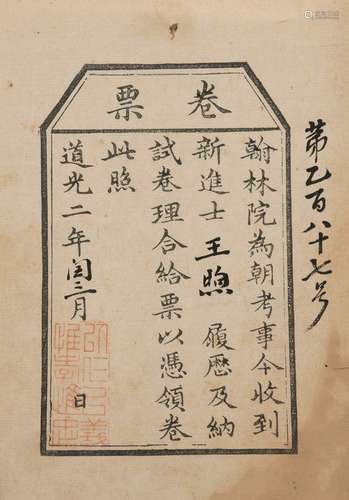 卷票
翰林院為朝考事今收到
新進士王煦履歷及納
試卷理合給票以憑領卷
此照
道光二年閏三月 日
第乙百八十七号